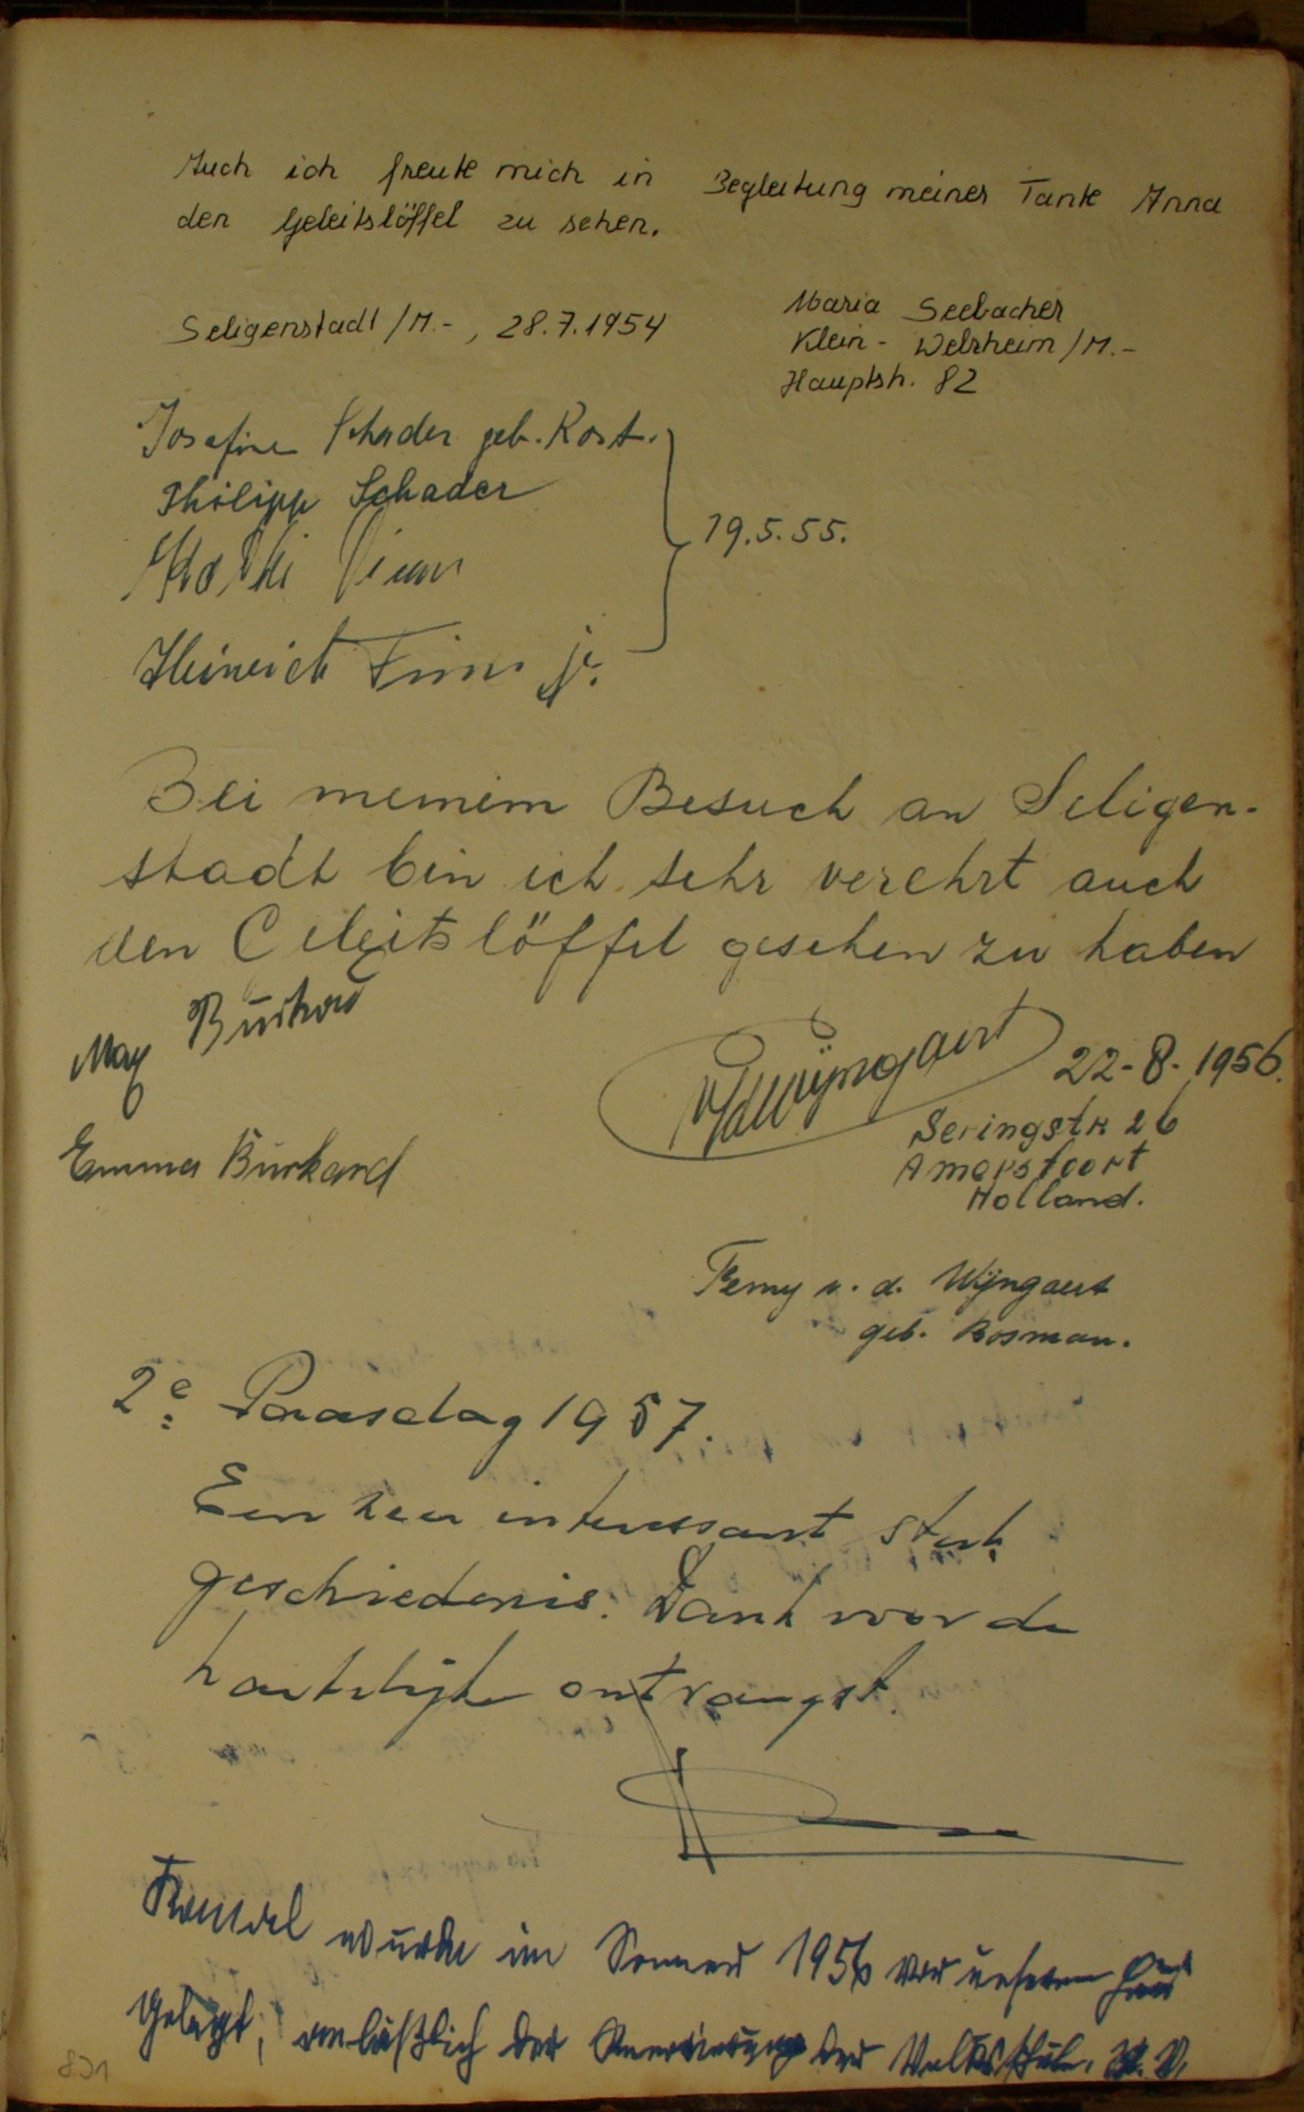 Auch ich freute mich in Begleitung meiner Tante Anna
den Geleitslöffel zu sehen.
Seligenstadt /M.-, 28.7.1954
Maria Seebacher
Klein-Welzheim /M.-
Hauptstr. 82
Josefine Schader geb. Kost.
Philipp Schader
19.5.55.
Heinrich jr.
Bei meinem Besuch an Seligen-
stadt bin ich sehr verehrt auch
den Geleitslöffel gesehen zu haben
Max Burkard
vdWijngaert 22-8-1956.
Seringstr 26
Amersfoort
Holland.
Emma Burkard
Femy v. d. Wijngaert
geb. Bosman.
2e Paasdag 1957.
Een zeer interessant stuk
geschiedenis. Dank voor de
hartelijke ontvangst.
wurde im Sommer 1956 vor unserem Haus
gelegt, anlässlich der Renovierung der Volksschule.
831